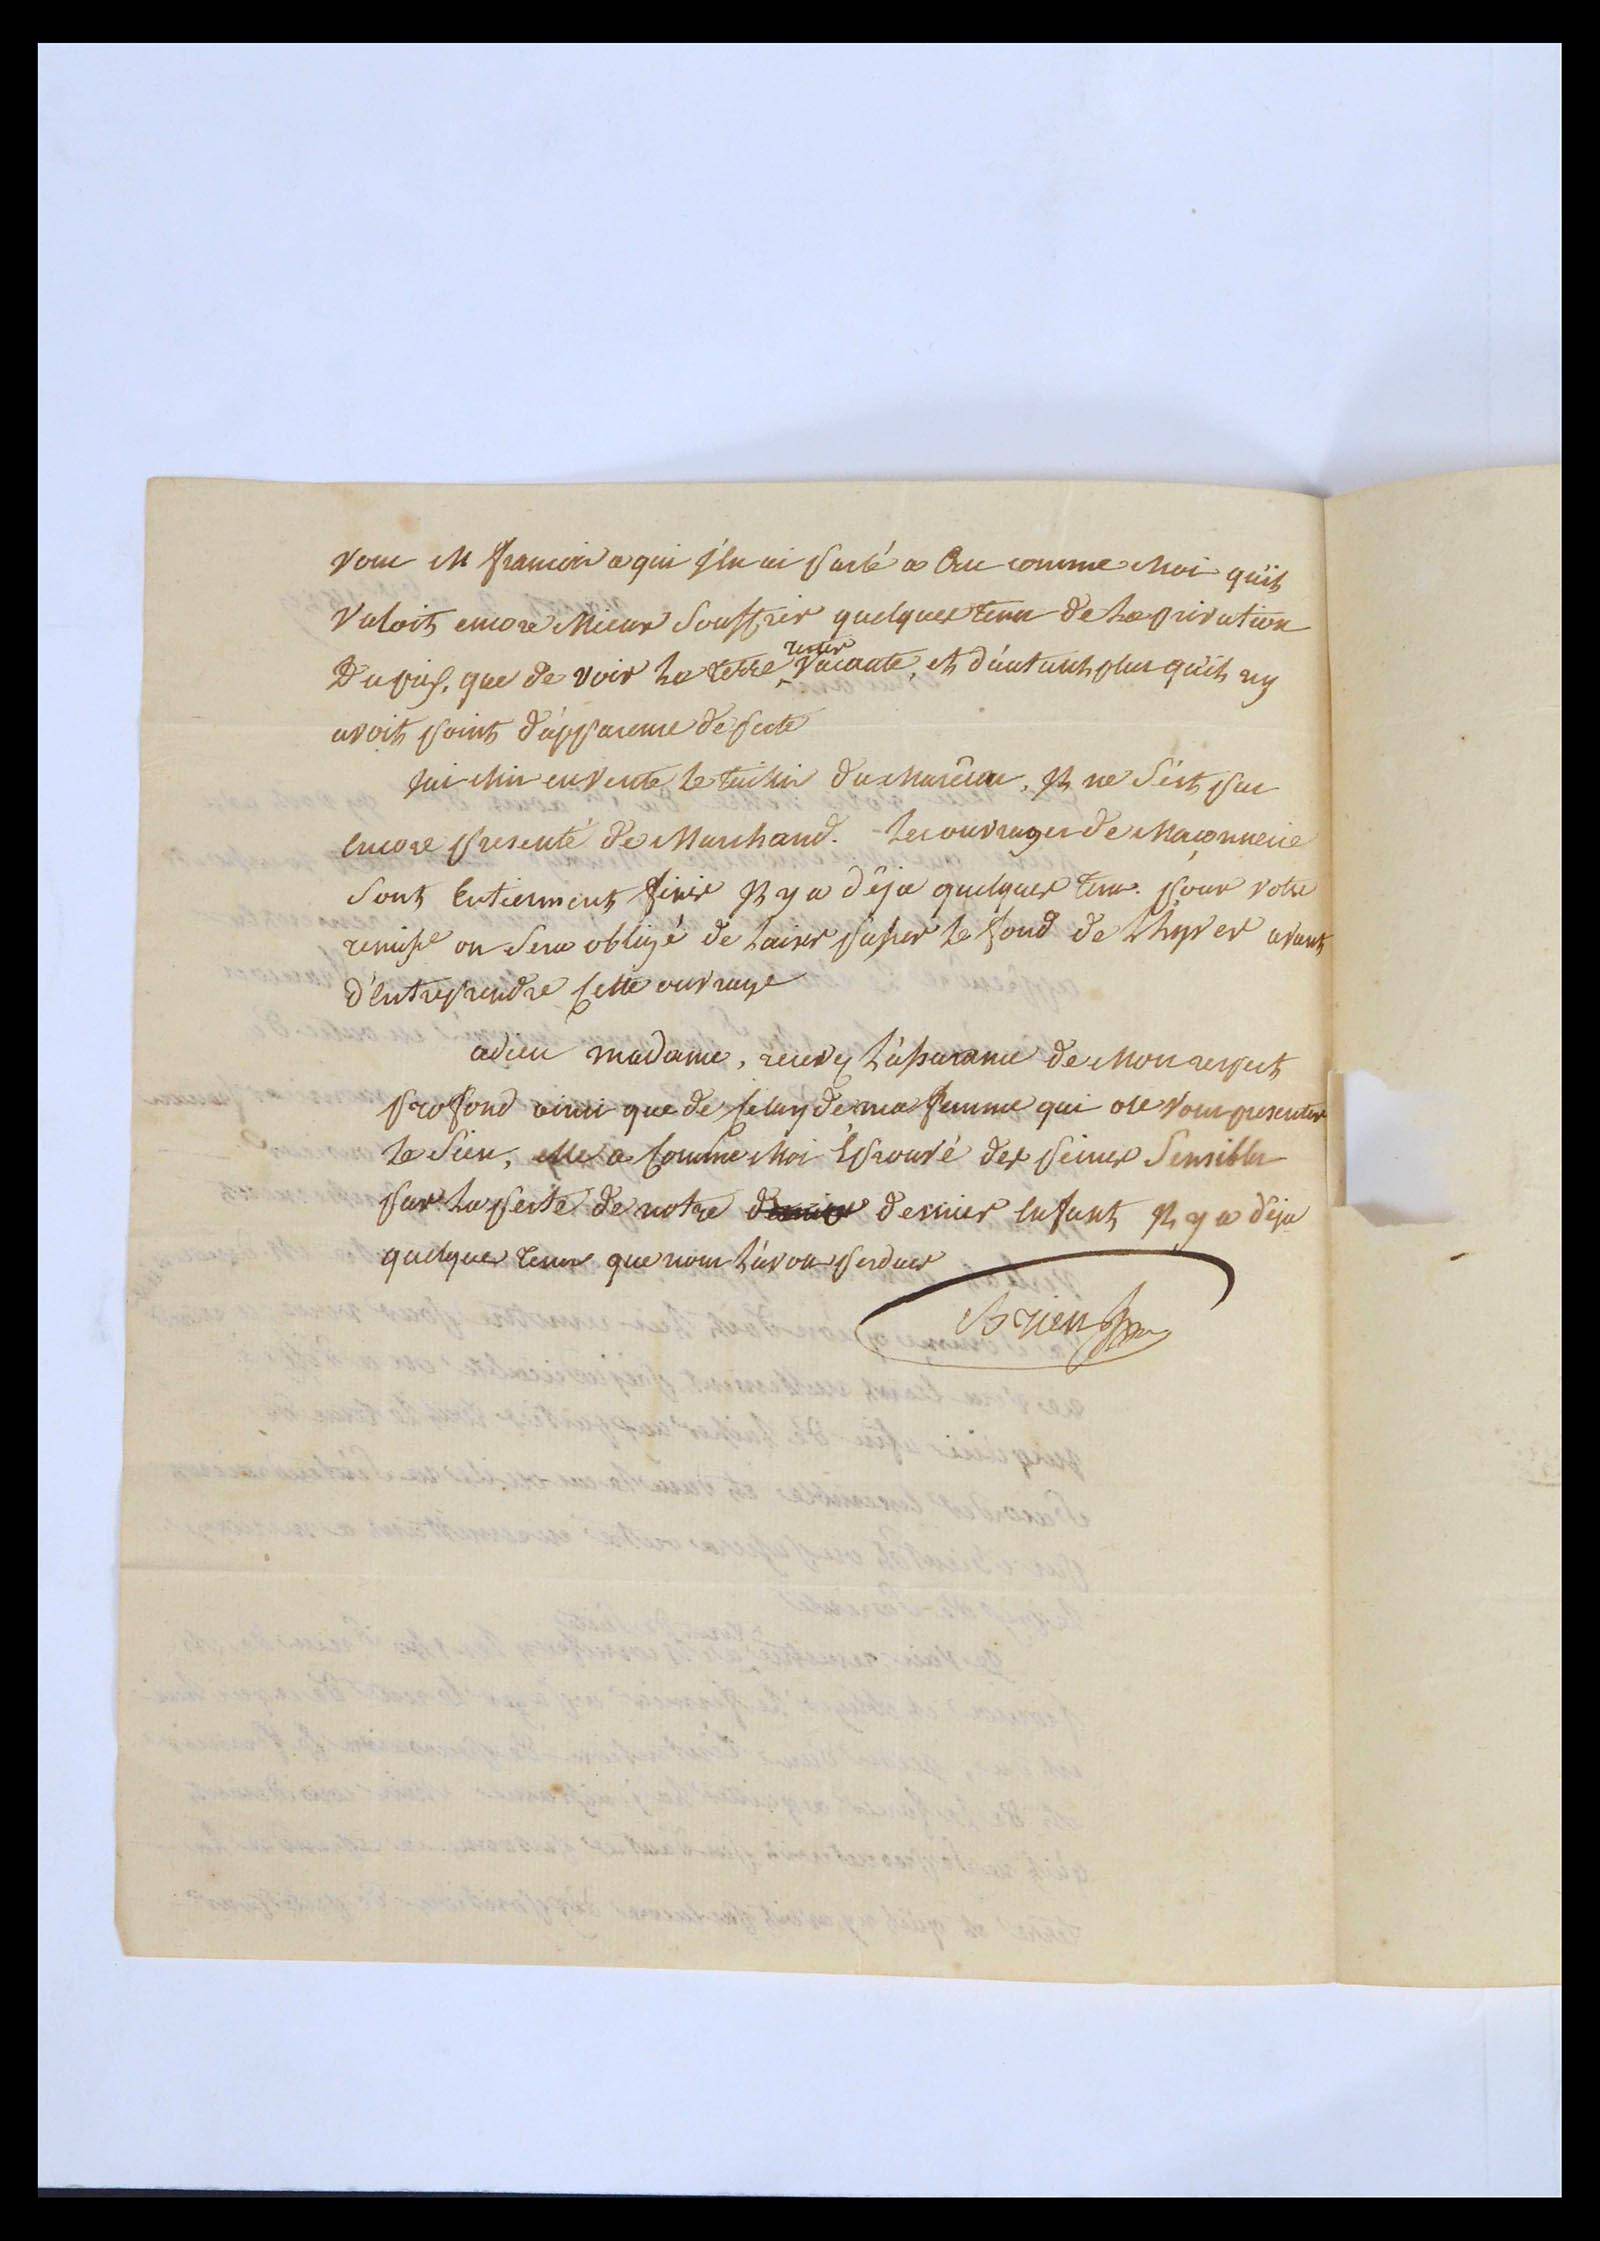 vous M francois a qui j'en ai parlé a Cru comme Moi qu'il
Valoit encore Mieux Souffrir quelques tems de La privation
Du prix, que de voir La terre rester Vacante, et d'autant plus qu'il ny
avoit point d'apparence de perte
Jai Mis en Vente le taillis du Marêcau, Il ne s'est pas
Encore presenté de Marchand. Les ouvrages de Maçonnerie
Sont Entierment finis Il y a déja quelques tems. pour votre
remise on Sera obligé de Laisser passer le fond de Lhyver avant
d'Entreprendre Cette ouvrage
adieu madame, recevez L'assurance de Mon respect
profond ainsi que de Celuy de ma femme qui ose vous presenter
Le Sien, elle a Comme Moi Éprouvé des peines Sensibles
par La perte de notre dernier dernier Enfant Il y a déja
quelques tems que nous L'avons perdues
Brien